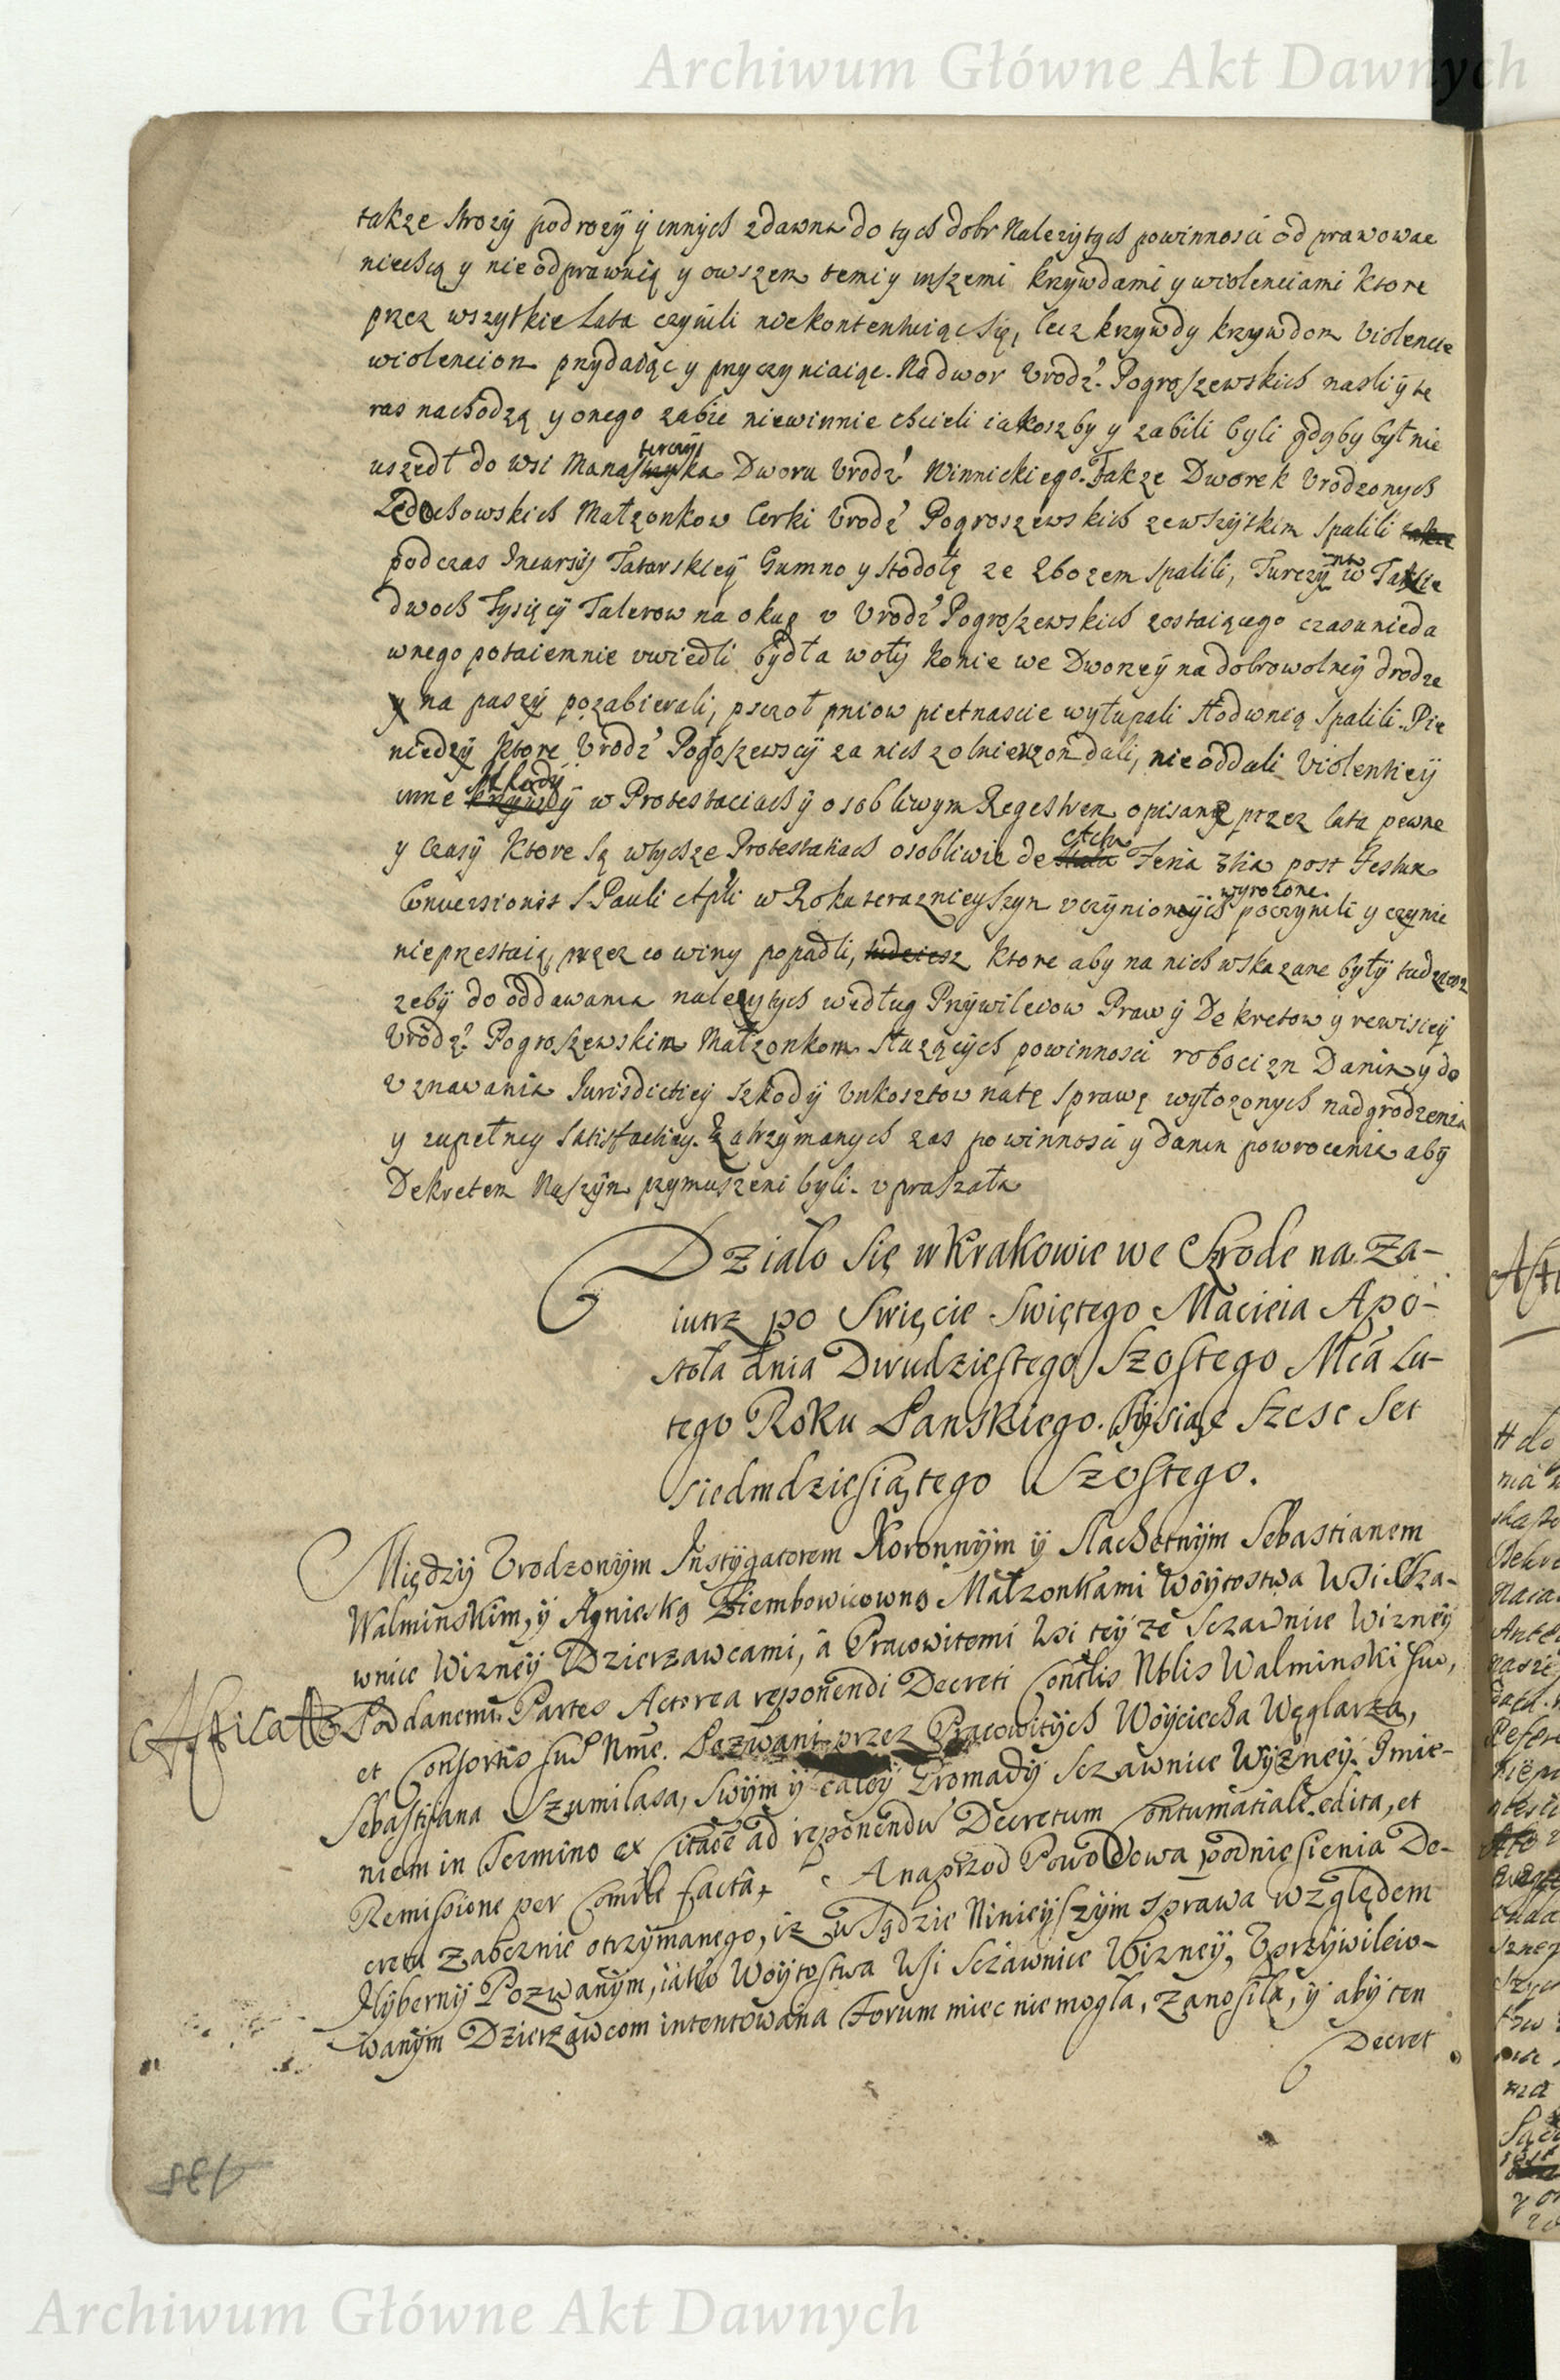 Archiwum Główne Akt Dawnych
takze strozy podrozÿ ÿ innÿch zdawna do tych dobr Nalezÿtych powinnosci odprawowac
niechcą y nieodprawuią y owszem temi y inszemi krzywdami y wiolenciami Ktore
przez wszytkie Lata czynili niekontentuiąc się, lecz krzywdy krzywdom violencie
wiolenciom przydaiąc y przyczyniaiąc. Na dwor Vrodz. Pogroszewskich naslÿ y te
raz nachodzą y onego zabic niewinnie chcieli iakoszby y zabili byli gdyby był nie
uszedł do wsi
Dworu Vrodz Winnickiego. Takze Dworek Vrodzonych
Ledochowskich Małzonkow Corki Vrodz Pogroszewskich zewszÿtkim spalili
podczas Incursÿi Tatarskieÿ Gumno y stodołę ze zbozem spalili, Turczÿna w Taxie
dwoch Tysięcÿ Talerow na okup v Vrodz Pogroszewskich zostaiącego czasu nieda
wnego potaiemnie vwiedli bÿdła wołÿ konie we Dworzeÿ na dobrowolneÿ drodze
y na paszÿ pozabierali, psczoł pniow pietnascie wyłupali słodwnią spalili. Pie
niedzÿ ktore Vrodz Pogroszewscÿ za nich zolnierzom dali, nieoddali Violentieÿ
inne szkodÿ w Protestaciach ÿ osobliwym Regestrem opisane przez lata pewne
y czasÿ Ktore są wtychze Protestatiach osobliwie de Actu Feria 3tia post Festum
Conuersionis S Pauli Apli w Roku teraznieyszym vczÿnionÿch wyrozone poczynili y czynic
nieprzestaią, przez co winy popadli, tudziesz ktore aby na nich wskazane byłÿ tudziesz
zebÿ do oddawania nalezytych według Prÿwilevow Praw ÿ Dekretow y rewisieÿ
Vrodz. Pogroszewskim Małzonkom słuzącÿch powinnosci robocizn Danin y do
vznawania Jurisdictieÿ szkodÿ vnkosztow natę sprawę wyłozonych nadgrodzenia
y zupełney satisfactiey. Zatrzymanych zas powinnosci y danin powrocenia abÿ
Dekretem Naszÿm przymuszeni byli. vpraszała
Działo się w Krakowie we Srode na za-
iutrz po Swięcie Swiętego Macieia Apo-
stoła dnia Dwudziestego Szostego Mca Lu-
tego Roku Panskiego. Tÿsiąc Szesc Set
siedmdziesiątego Szostego.
Międzÿ Vrodzonÿm Instÿgatorem Koronnÿm ÿ Slachetnÿm Sebastianem
Walminskim, ÿ Agnieską Ziembowicowną Małzonkami Woÿtostwa Wsi Scza-
wnice Wizneÿ Dzierzawcami, a Pracowitemi Wsi teÿze Sczawnice Wizneÿ
Poddanemi. Partes Actorea reponendi Decreti Contlis Nblis Walminski suo,
et Consortis suæ Nme. Pozwani przez Pracowitÿch Woÿciecha Węglarza,
Sebastÿana Szumilasa, Swÿm ÿ całeÿ Gromadÿ Sczawnice Wÿzneÿ. Imie-
niem in Termino ex Citaoe ad reponendũ Decretum Contumatiale edita, et
Remissione per Comiss facta, Anaprzod Powodowa podniesienia De-
cretu Zaocznie otrzÿmanego, iz w Sądzie Ninieÿszÿm sprawa względem
Hÿbernÿ Pozwanÿm, iako Woÿtostwa Wsi Sczawnice Wizneÿ, Vprzÿwileio-
wanÿm Dzierzawcom intentowana Forum miec niemogła, Zanosiła, ÿ abÿ ten
Decret
138
Archiwum Główne Akt Dawnych